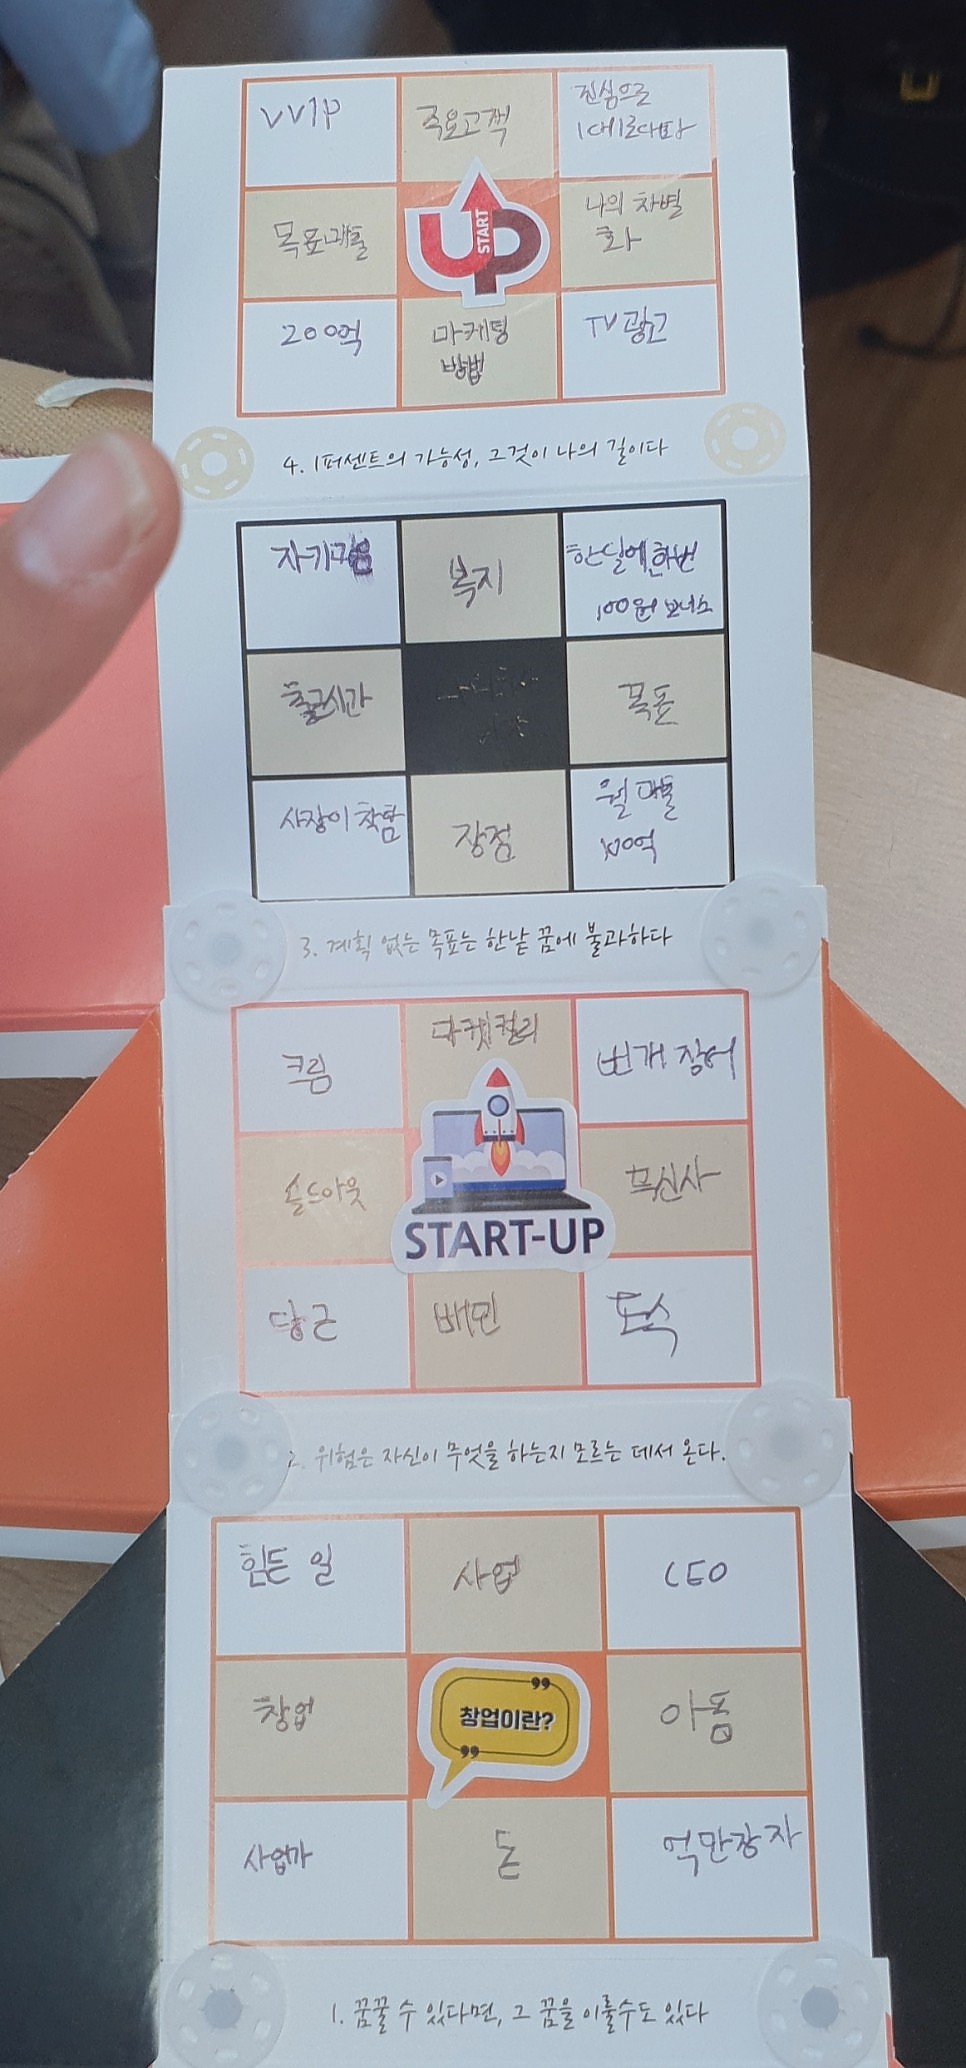 VVIP
주요고객
진심으로
1대1로다함
목표매출
START
UP
나의 차별
화
200억
마케팅
방법
TV 광고
4. 1퍼센트의 가능성, 그것이 나의 길이다
복지
한달에 한번
100원 보너스
출근시간
목표
사장이 착함
장점
월 매출
100억
3. 계획 없는 목표는 한낱 꿈에 불과하다
크림
마켓컬리
번개 장터
솔드아웃
무신사
START-UP
당근
배민
토스
2. 위험은 자신이 무엇을 하는지 모르는 데서 온다.
힘든 일
사업
CEO
창업
창업이란?
사업가
돈
억만장자
1. 꿈꿀 수 있다면, 그 꿈을 이룰수도 있다